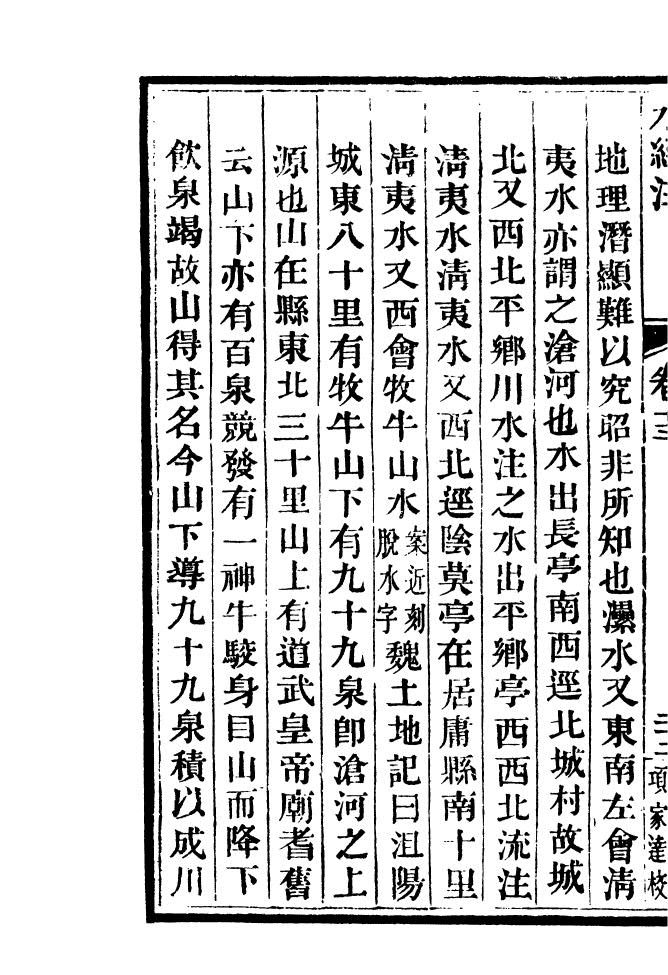 水經注 卷十三 二十二 項家達校
地理潛顯難以究昭非所知也㶟水又東南左會清
夷水亦謂之滄河也水出長亭南西逕北城村故城
北又西北平鄉川水注之水出平鄉亭西西北流注
清夷水清夷水又西北逕陰莫亭在居庸縣南十里
清夷水又西會牧牛山水案近刻脫水字魏土地記曰沮陽
城東八十里有牧牛山下有九十九泉卽滄河之上
源也山在縣東北三十里山上有道武皇帝廟耆舊
云山下亦有百泉競發有一神牛駮身自山而降下
飲泉竭故山得其名今山下導九十九泉積以成川